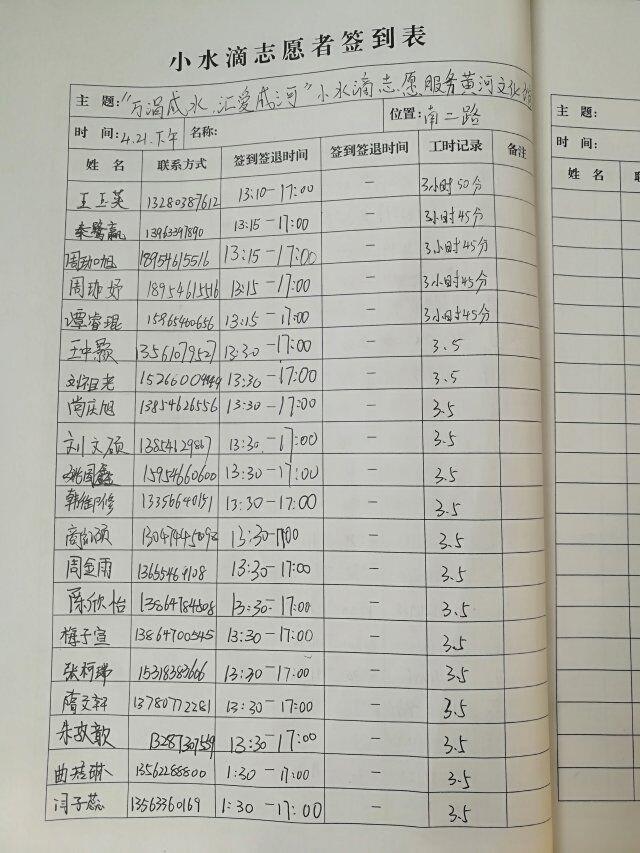 小水滴志愿者签到表
主 题: "万涓成水,汇爱成河"小水滴志愿服务黄河文化馆
时 间: 4.21.下午 名称: 位置: 南二路
姓 名 联系方式 签到签退时间 签到签退时间 工时记录 备注
王玉英 13280387612 13:10-17:00 — 3小时50分
秦鹭赢 13963397890 13:15-17:00 — 3小时45分
周劲旭 18954615516 13:15-17:00 — 3小时45分
周珈妤 18954615516 13:15-17:00 — 3小时45分
谭睿琨 15965460656 13:15-17:00 — 3小时45分
王中颢 13561079527 13:30-17:00 — 3.5
刘祖光 13:30-17:00 — 3.5
尚庆旭 13854626556 13:30-17:00 — 3.5
刘文硕 13854129867 13:30-17:00 — 3.5
姚国鑫 15954660600 13:30-17:00 — 3.5
韩 修 13356640151 13:30-17:00 — 3.5
商 硕 13:30-17:00 — 3.5
周金雨 13655469108 13:30-17:00 — 3.5
陈欣怡 13864784508 13:30-17:00 — 3.5
梅子宣 13864700545 13:30-17:00 — 3.5
张柯瑞 15318383606 13:30-17:00 — 3.5
隋文轩 13780772281 13:30-17:00 — 3.5
朱 歆 13287307559 13:30-17:00 — 3.5
曲 琳 13562288800 1:30-17:00 — 3.5
闫子蕊 13563360169 1:30-17:00 — 3.5
主 题:
时 间:
姓 名